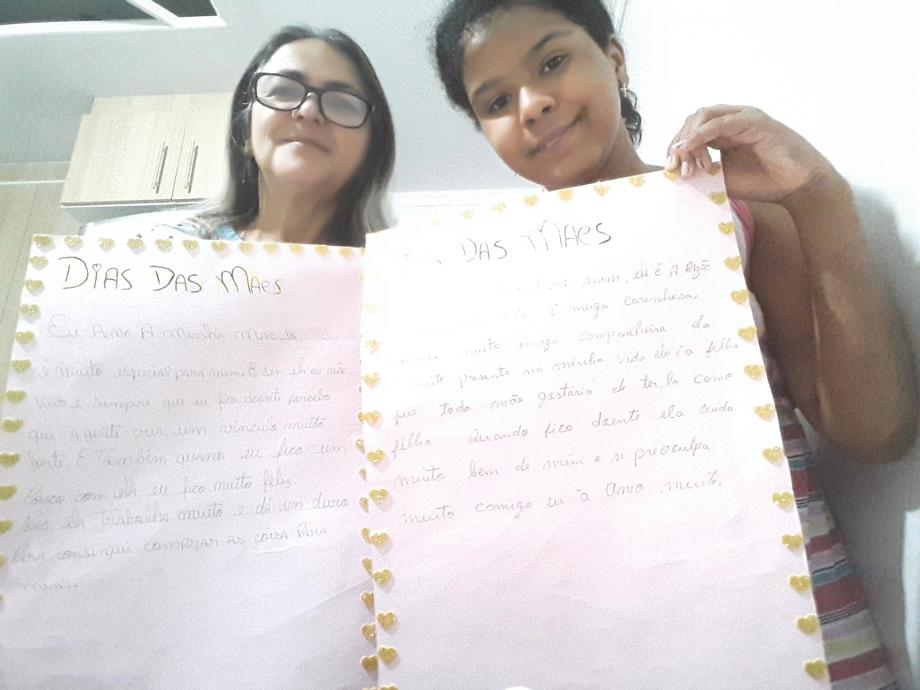 DIAS DAS MÃES
Eu Amo A minha mãe,
é muito especial para mim. E sem ela eu não
vivo e sempre que eu fico doente percebo
que A gente cria um vínculo muito
forte. E Também quando eu fico um
Pouco com ela eu fico muito feliz.
ela trabalha muito e dá um duro
Para consegui comprar as coisa Para
mim.
DAS MÃES
mim, ela é A Razão
é muito carinhosa,
muito amiga companheira ela
muito presente na minha vida ela é a filha
que toda mãe gostaria de ter-la como
filha. Quando fico doente ela cuida
muito bem de mim e se preoculpa
muito comigo eu à Amo muito.